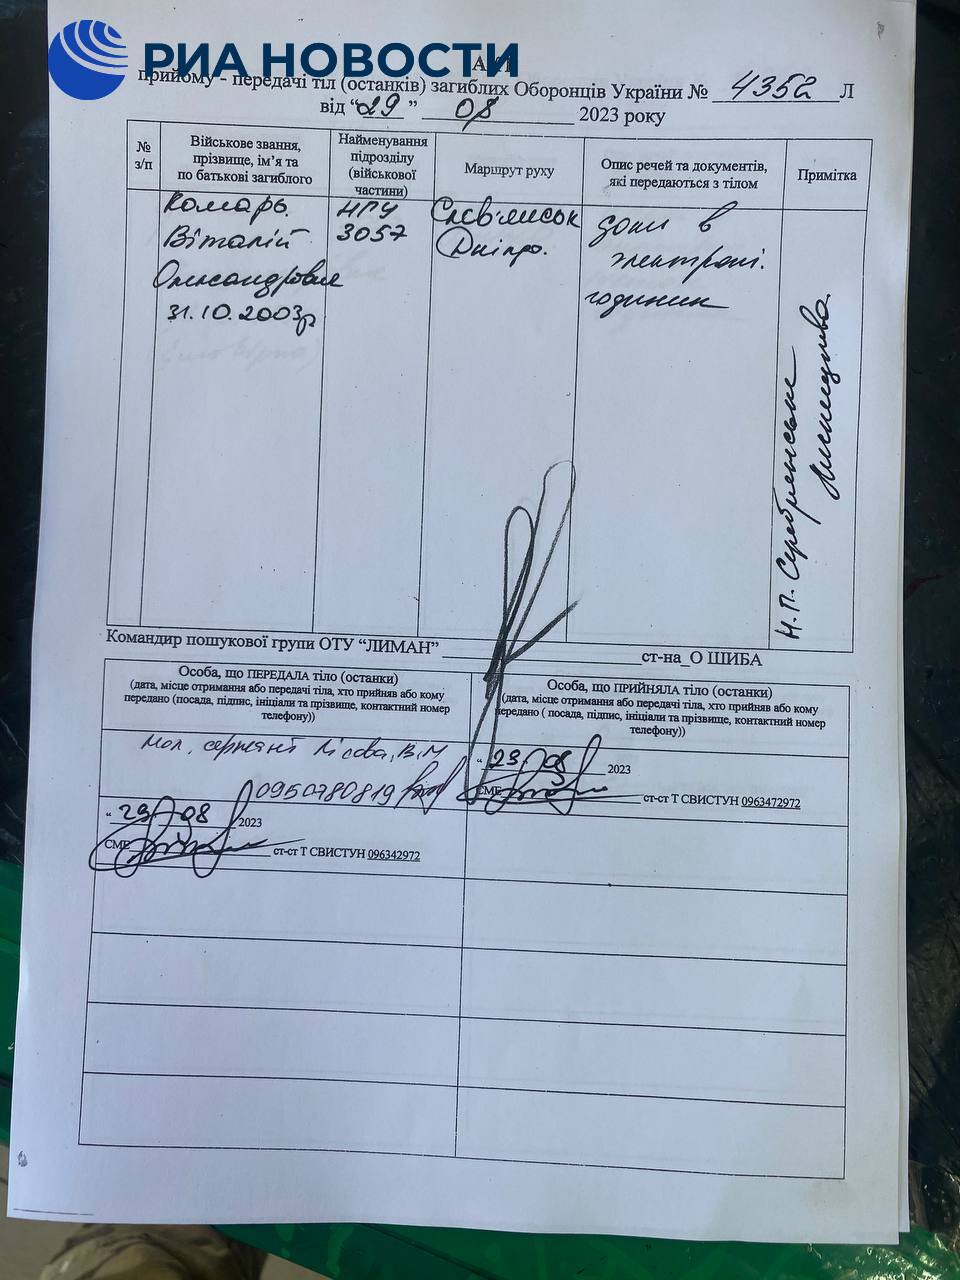 РИА НОВОСТИ
АКТ
прийому - передачі тіл (останків) загиблих Оборонців України № 4352 Л
від “29” 08 2023 року
№ з/п
Військове звання,
прізвище, ім’я та
по батькові загиблого
Найменування
підрозділу
(військової
частини)
Маршрут руху
Опис речей та документів,
які передаються з тілом
Примітка
Комарь
Віталій
Олександрович
31.10.2003р
НГУ
3057
Слов'янськ
Дніпро.
доки в
електроні.
годинник
Н.П. Серебрянське
Командир пошукової групи ОТУ “ЛИМАН” ст-на О ШИБА
Особа, що ПЕРЕДАЛА тіло (останки)
(дата, місце отримання або передачі тіла, хто прийняв або кому
передано (посада, підпис, ініціали та прізвище, контактний номер
телефону))
Особа, що ПРИЙНЯЛА тіло (останки)
(дата, місце отримання або передачі тіла, хто прийняв або кому
передано ( посада, підпис, ініціали та прізвище, контактний номер
телефону))
мол, сержант Лісова, В,М
0950780819
“ 29 ” 08 2023
СМЕ ст-ст Т СВИСТУН 096342972
“ 29 ” 08 2023
СМЕ ст-ст Т СВИСТУН 0963472972